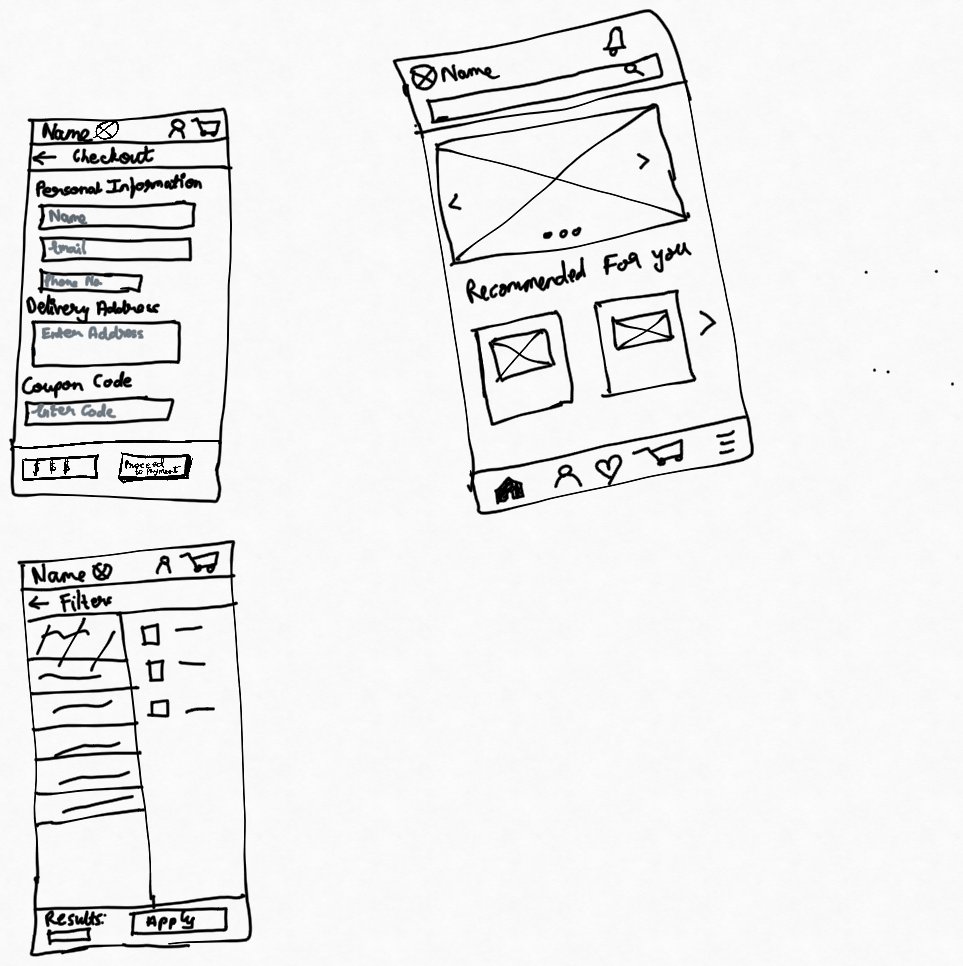 Name
Checkout
Personal Information
Name
Email
Phone No.
Delivery Address
Enter Address
Coupon Code
Enter Code
₹ ₹ ₹
Proceed
to Payment
Name
Recommended For you
Name
Filters
Results:
Apply